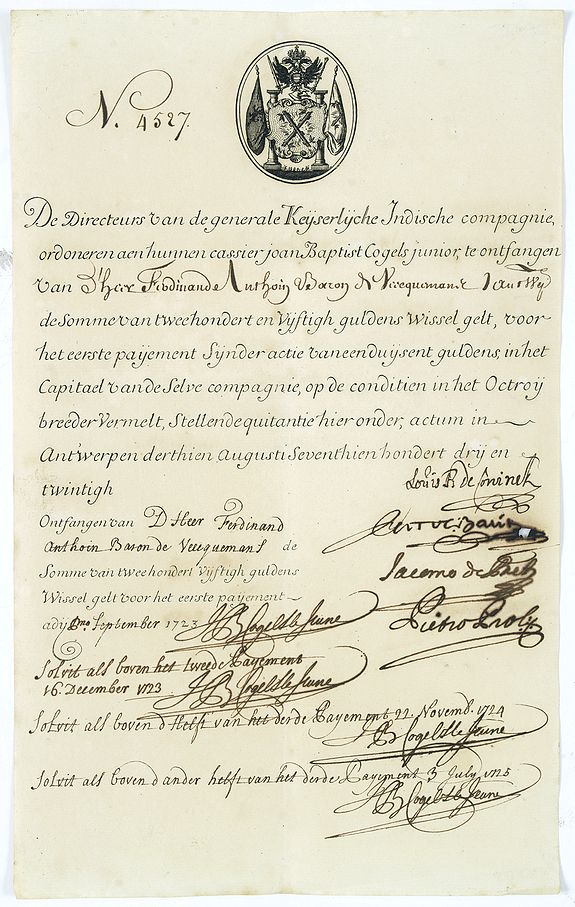 N. 4527.
De Directeurs van de generale Keyserlijche Indische compagnie,
ordoneren aen hunnen cassier joan Baptist Cogels junior, te ontfangen
van D'heer Ferdinande Anthoin Baron de Vecquemans
de Somme van tweehondert en Vijftigh guldens Wissel gelt, voor
het eerste payement Sijnder actie van eenduysent guldens, in het
Capitael van de Selve compagnie, op de conditien in het Octroij
breeder Vermelt, Stellende quitantie hier onder, actum in
Antwerpen derthien Augusti Seventhien hondert drij en
twintigh
Louis F. de Coninck
Ontfangen van D Heer Ferdinand
Anthoin Baron de Vecquemans de
Jacomo de Pret
Somme van tweehondert Vijftigh guldens
Wissel gelt voor het eerste payement
Pietro Proli
adij September 1723 JB Cogels le Jeune
Solvit als boven het tweede Payement
16 December 1723 JB Cogels le Jeune
Solvit als boven d'Helft van het derde Payement 22 Novemb. 1724
JB Cogels le Jeune
Solvit als boven d'ander helft van het derde Payement 3 July 1725
JB Cogels le Jeune